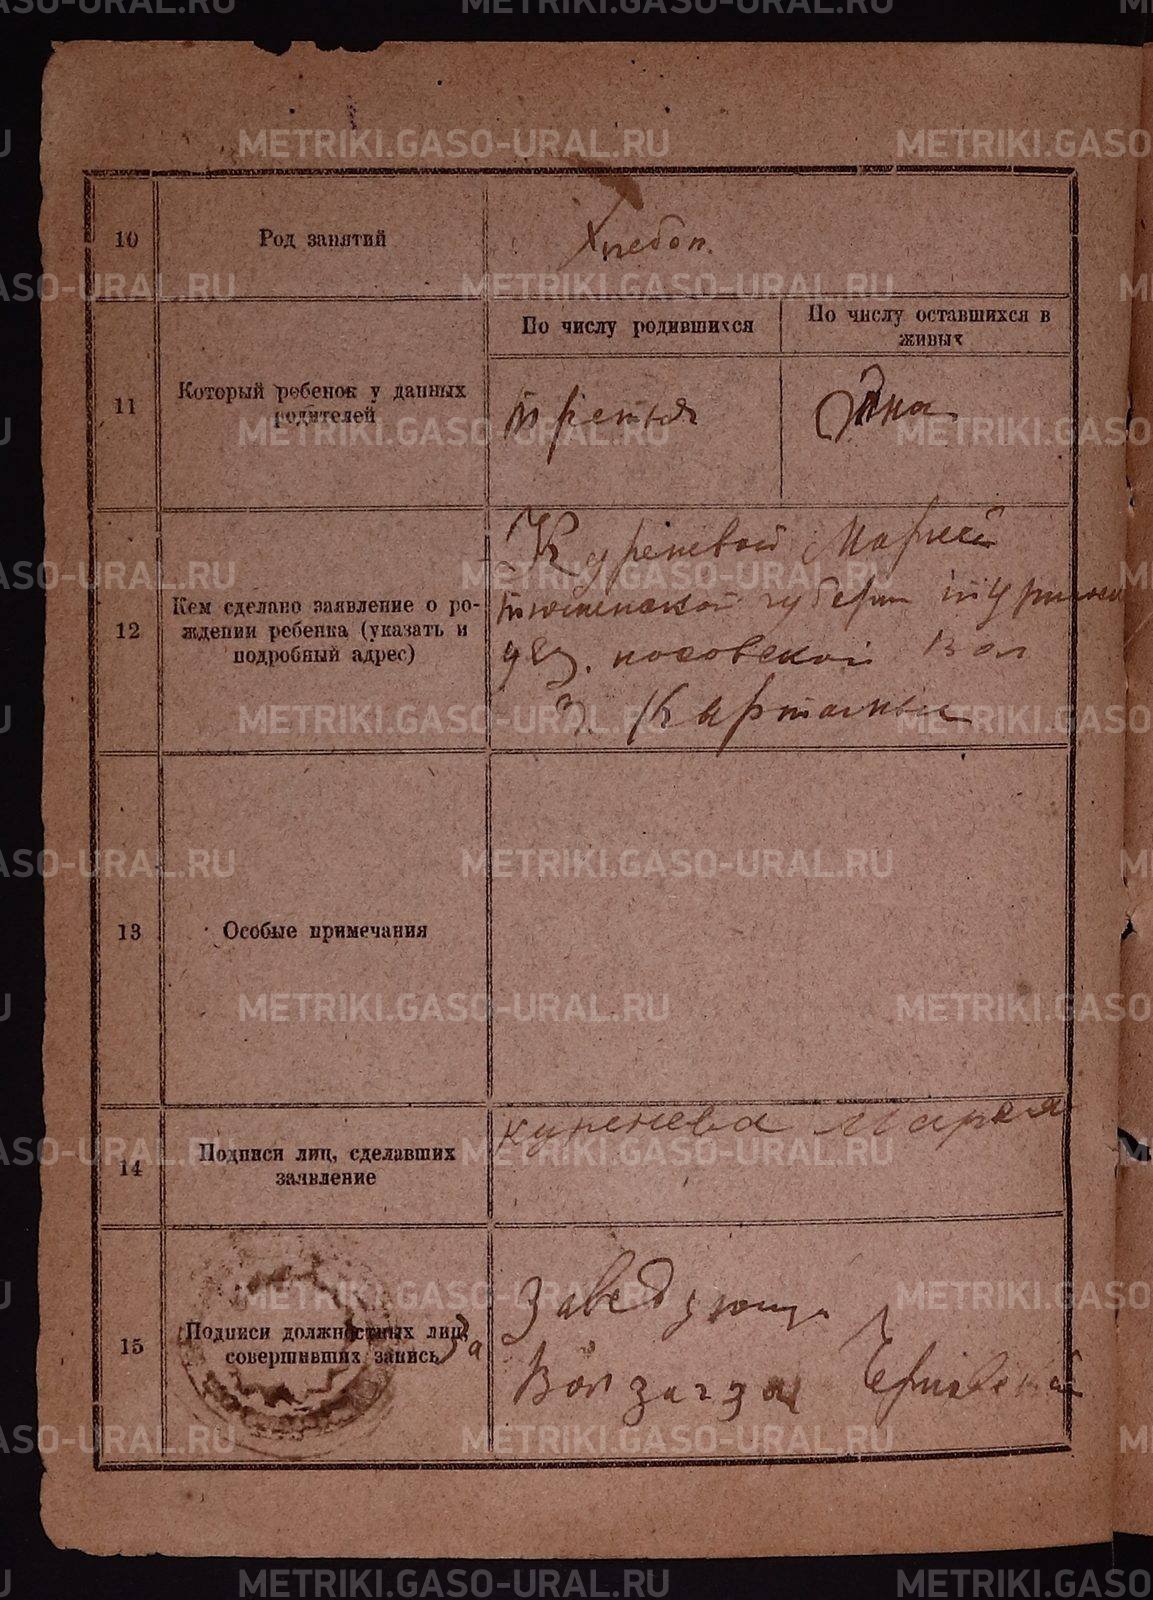 10
Род занятий
Хлебоп.
11
Который ребенок у данных
родителей
По числу родившихся
По числу оставшихся в
живых
третья
Одна
12
Кем сделано заявление о ро-
ждении ребенка (указать и
подробный адрес)
Куреневой Марией
тюменской губерн туринск
уез. носовской вол
д.
13
Особые примечания
14
Подписи лиц, сделавших
заявление
куренева Мария
15
Подписи должностных лиц,
совершивших запись
За
Заведующ
METRIKI.GASO-URAL.RU